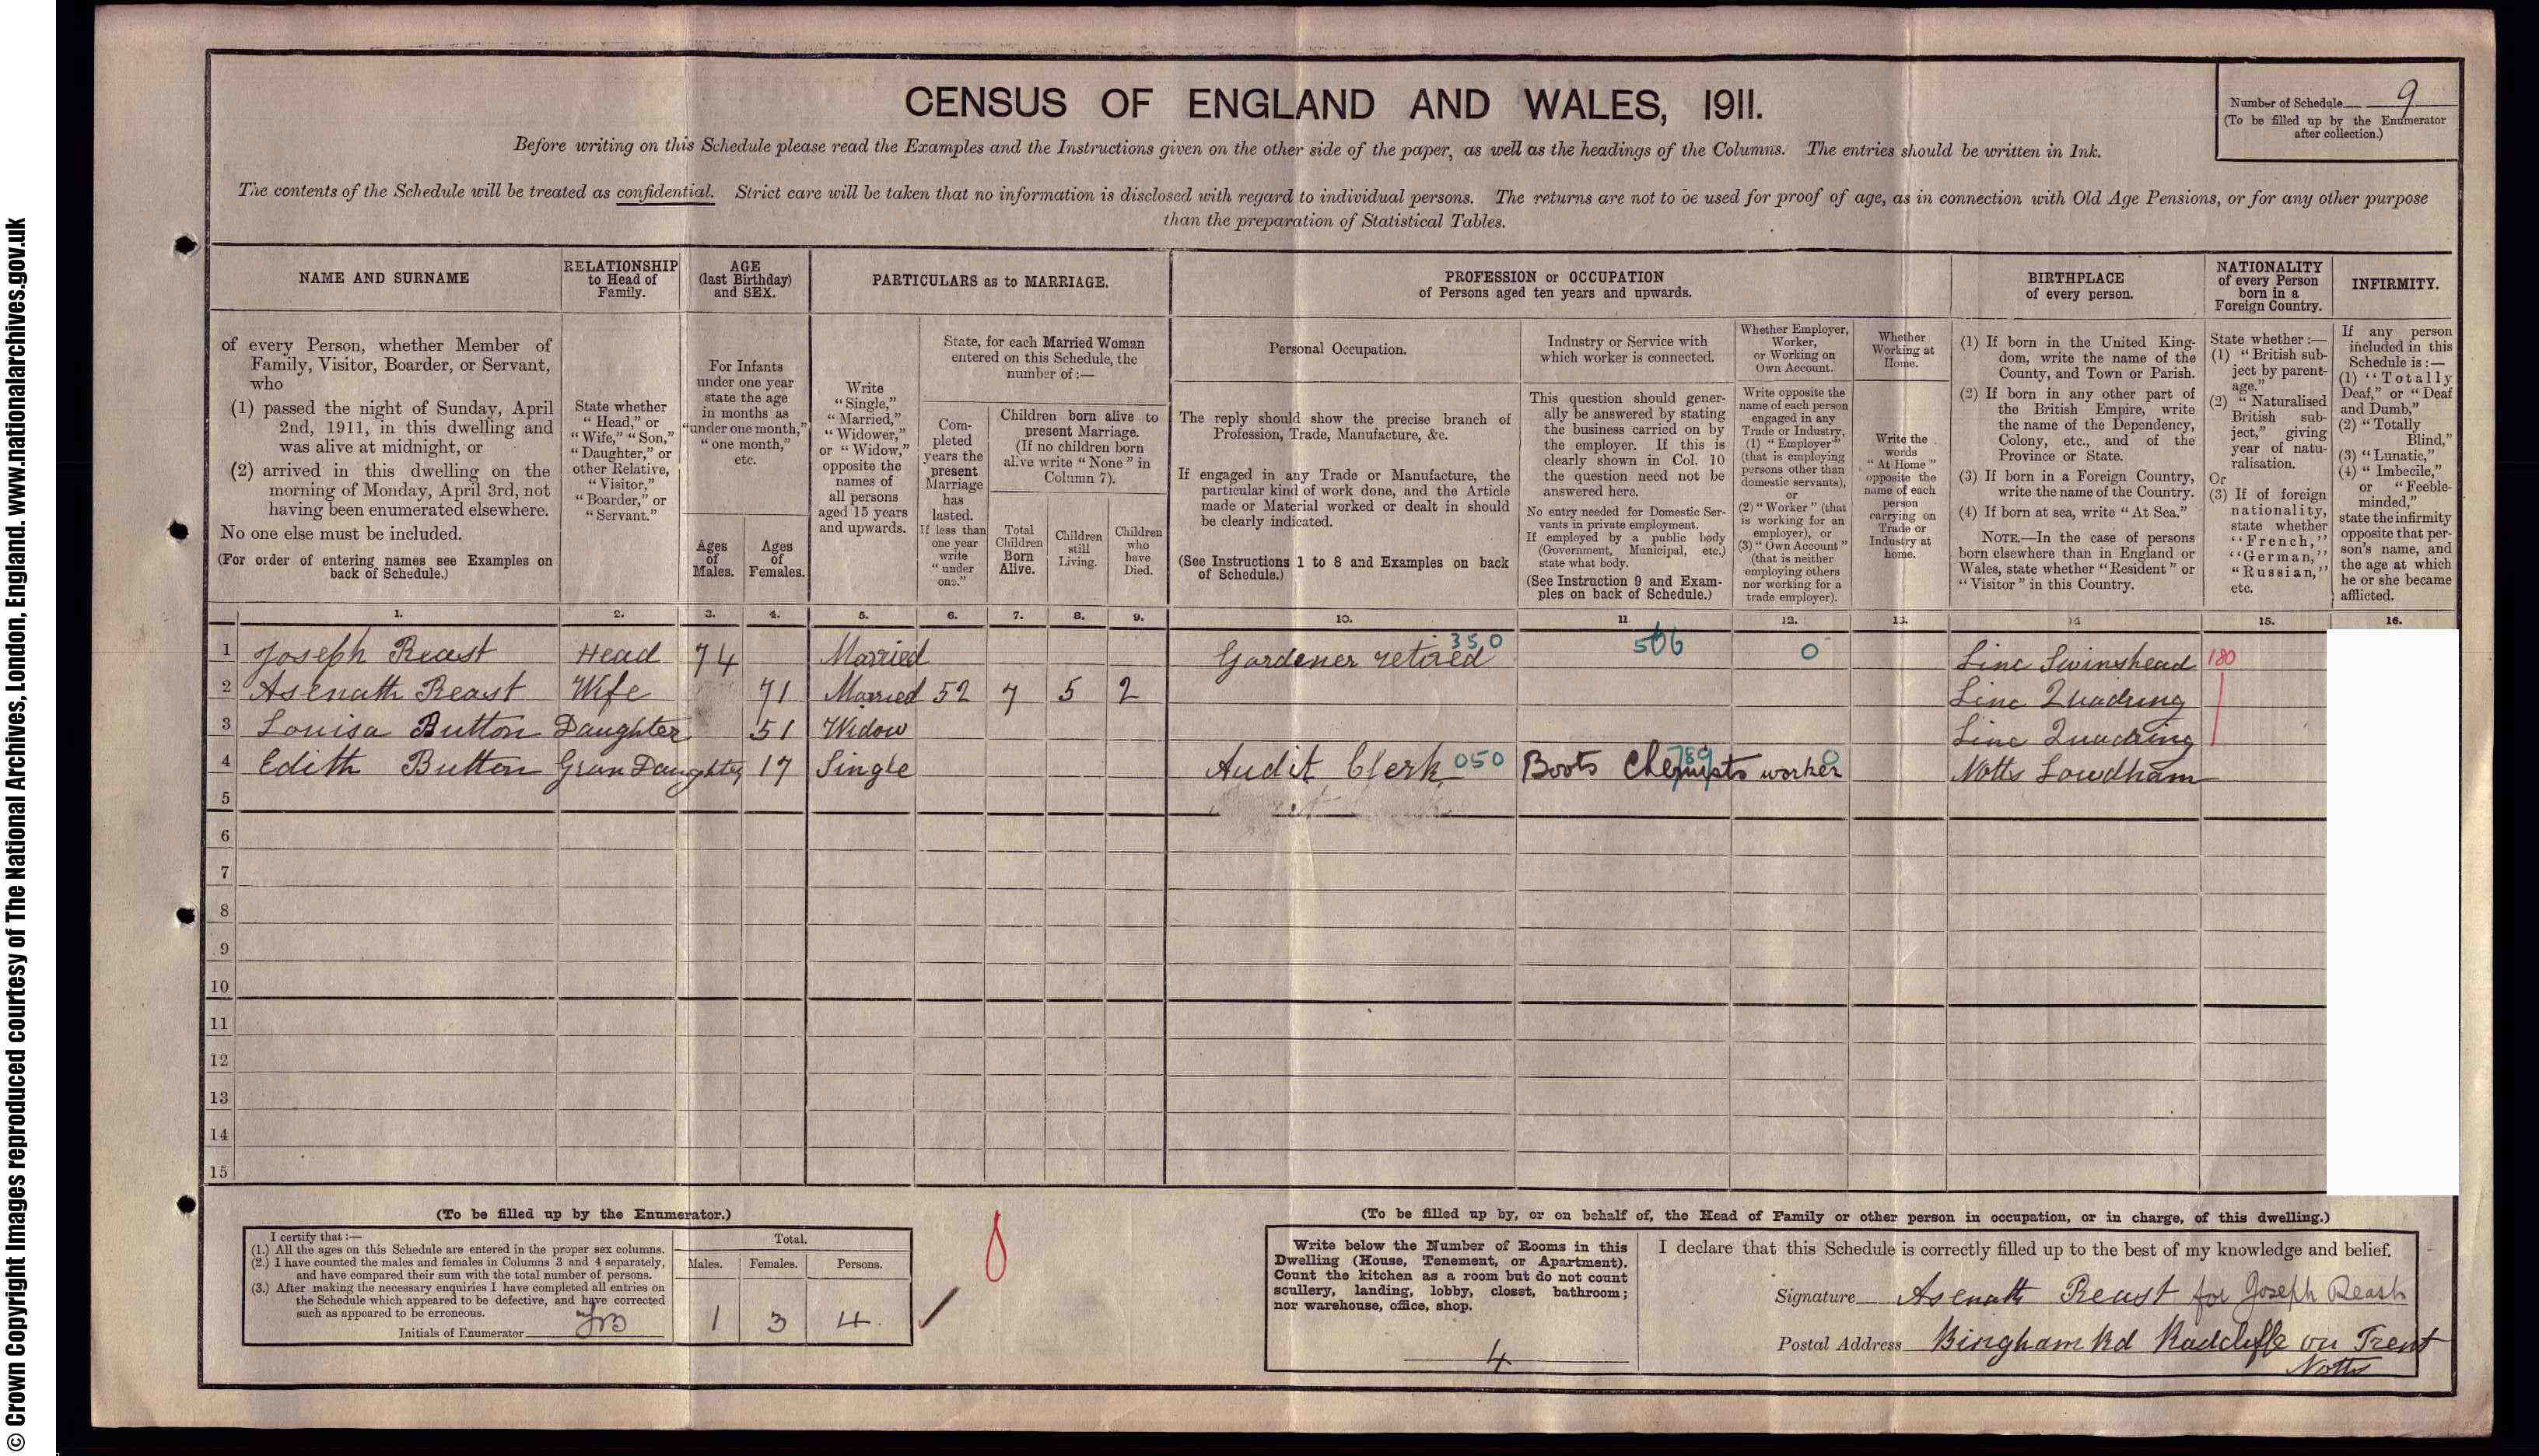 © Crown Copyright Images reproduced courtesy of The National Archives, London, England. www.nationalarchives.gov.uk
CENSUS OF ENGLAND AND WALES, 1911.
Number of Schedule 9
(To be filled up by the Enumerator
after collection.)
Before writing on this Schedule please read the Examples and the Instructions given on the other side of the paper, as well as the headings of the Columns. The entries should be written in Ink.
The contents of the Schedule will be treated as confidential. Strict care will be taken that no information is disclosed with regard to individual persons. The returns are not to be used for proof of age, as in connection with Old Age Pensions, or for any other purpose
than the preparation of Statistical Tables.
NAME AND SURNAME
of every Person, whether Member of
Family, Visitor, Boarder, or Servant,
who
(1) passed the night of Sunday, April
2nd, 1911, in this dwelling and
was alive at midnight, or
(2) arrived in this dwelling on the
morning of Monday, April 3rd, not
having been enumerated elsewhere.
No one else must be included.
(For order of entering names see Examples on
back of Schedule.)
RELATIONSHIP
to Head of
Family.
State whether
"Head," or
"Wife," "Son,"
"Daughter," or
other Relative,
"Visitor,"
"Boarder," or
"Servant."
AGE
(last Birthday)
and SEX.
For Infants
under one year
state the age
in months as
"under one month,"
"one month,"
etc.
Ages
of
Males.
Ages
of
Females.
PARTICULARS as to MARRIAGE.
Write
"Single,"
"Married,"
"Widower,"
or "Widow,"
opposite the
names of
all persons
aged 15 years
and upwards.
State, for each Married Woman
entered on this Schedule, the
number of :—
Com-
pleted
years the
present
Marriage
has
lasted.
If less than
one year
write
"under
one."
Children born alive to
present Marriage.
(If no children born
alive write "None" in
Column 7).
Total
Children
Born
Alive.
Children
still
Living.
Children
who
have
Died.
PROFESSION or OCCUPATION
of Persons aged ten years and upwards.
Personal Occupation.
The reply should show the precise branch of
Profession, Trade, Manufacture, &c.
If engaged in any Trade or Manufacture, the
particular kind of work done, and the Article
made or Material worked or dealt in should
be clearly indicated.
(See Instructions 1 to 8 and Examples on back
of Schedule.)
Industry or Service with
which worker is connected.
This question should gener-
ally be answered by stating
the business carried on by
the employer. If this is
clearly shown in Col. 10
the question need not be
answered here.
No entry needed for Domestic Ser-
vants in private employment.
If employed by a public body
(Government, Municipal, etc.)
state what body.
(See Instruction 9 and Exam-
ples on back of Schedule.)
Whether Employer,
Worker,
or Working on
Own Account.
Write opposite the
name of each person
engaged in any
Trade or Industry,
(1) "Employer"
(that is employing
persons other than
domestic servants),
or
(2) "Worker" (that
is working for an
employer), or
(3) "Own Account"
(that is neither
employing others
nor working for a
trade employer).
Whether
Working at
Home.
Write the
words
"At Home"
opposite the
name of each
person
carrying on
Trade or
Industry at
home.
BIRTHPLACE
of every person.
(1) If born in the United King-
dom, write the name of the
County, and Town or Parish.
(2) If born in any other part of
the British Empire, write
the name of the Dependency,
Colony, etc., and of the
Province or State.
(3) If born in a Foreign Country,
write the name of the Country.
(4) If born at sea, write "At Sea."
NOTE.—In the case of persons
born elsewhere than in England or
Wales, state whether "Resident" or
"Visitor" in this Country.
NATIONALITY
of every Person
born in a
Foreign Country.
State whether :—
(1) "British sub-
ject by parent-
age."
(2) "Naturalised
British sub-
ject," giving
year of natu-
ralisation.
Or
(3) If of foreign
nationality,
state whether
"French,"
"German,"
"Russian,"
etc.
INFIRMITY.
If any person
included in this
Schedule is :—
(1) "Totally
Deaf," or "Deaf
and Dumb,"
(2) "Totally
Blind,"
(3) "Lunatic,"
(4) "Imbecile,"
or "Feeble-
minded,"
state the infirmity
opposite that per-
son's name, and
the age at which
he or she became
afflicted.
1. 2. 3. 4. 5. 6. 7. 8. 9. 10. 11 12. 13. 14 15. 16.
1 Joseph Reast Head 74 Married Gardener retired 350 506 0 Linc Swinshead 180
2 Asenath Reast Wife 71 Married 52 7 5 2 Linc Quadring
3 Louisa Button Daughter 51 Widow Linc Quadring
4 Edith Button Gran Daughter 17 Single Audit Clerk 050 Boots Chemists 789 worker 0 Notts Lowdham
5
6
7
8
9
10
11
12
13
14
15
(To be filled up by the Enumerator.)
I certify that :—
(1.) All the ages on this Schedule are entered in the proper sex columns.
(2.) I have counted the males and females in Columns 3 and 4 separately,
and have compared their sum with the total number of persons.
(3.) After making the necessary enquiries I have completed all entries on
the Schedule which appeared to be defective, and have corrected
such as appeared to be erroneous.
Initials of Enumerator
Total.
Males. Females. Persons.
1 3 4
(To be filled up by, or on behalf of, the Head of Family or other person in occupation, or in charge, of this dwelling.)
Write below the Number of Rooms in this
Dwelling (House, Tenement, or Apartment).
Count the kitchen as a room but do not count
scullery, landing, lobby, closet, bathroom;
nor warehouse, office, shop.
4
I declare that this Schedule is correctly filled up to the best of my knowledge and belief.
Signature Asenath Reast for Joseph Reast
Postal Address Bingham Rd Radcliffe on Trent
Notts